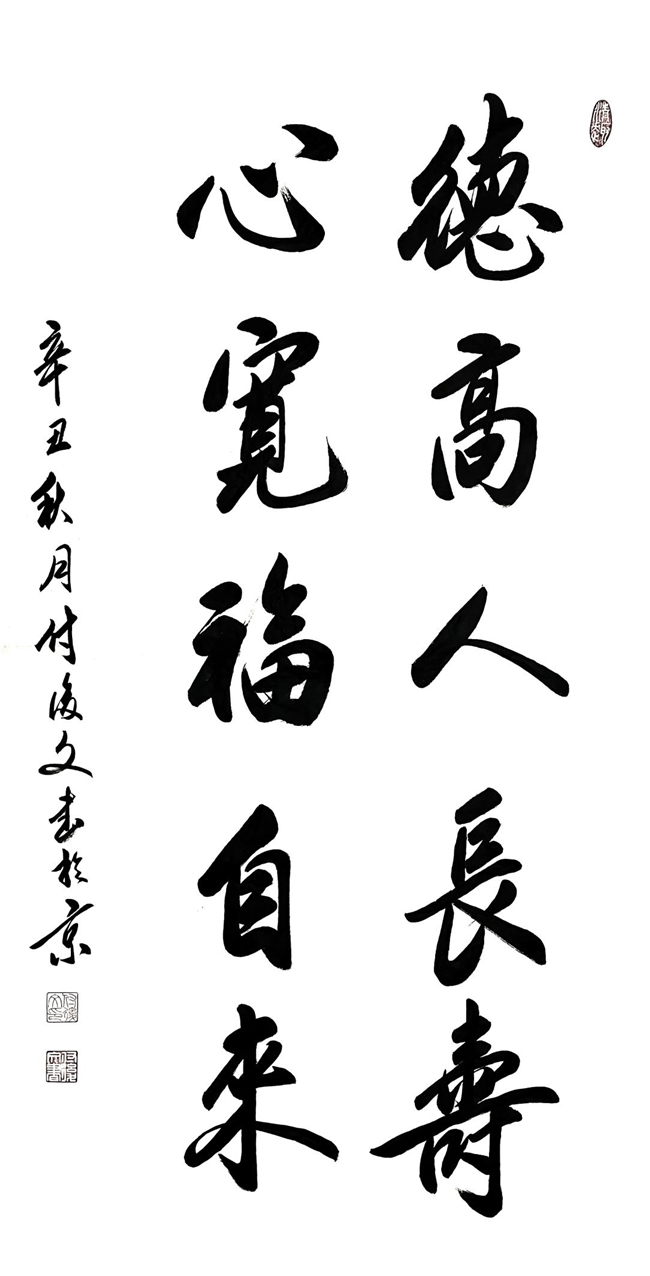 德高人長壽
心寬福自來
辛丑秋月付俊文書於京